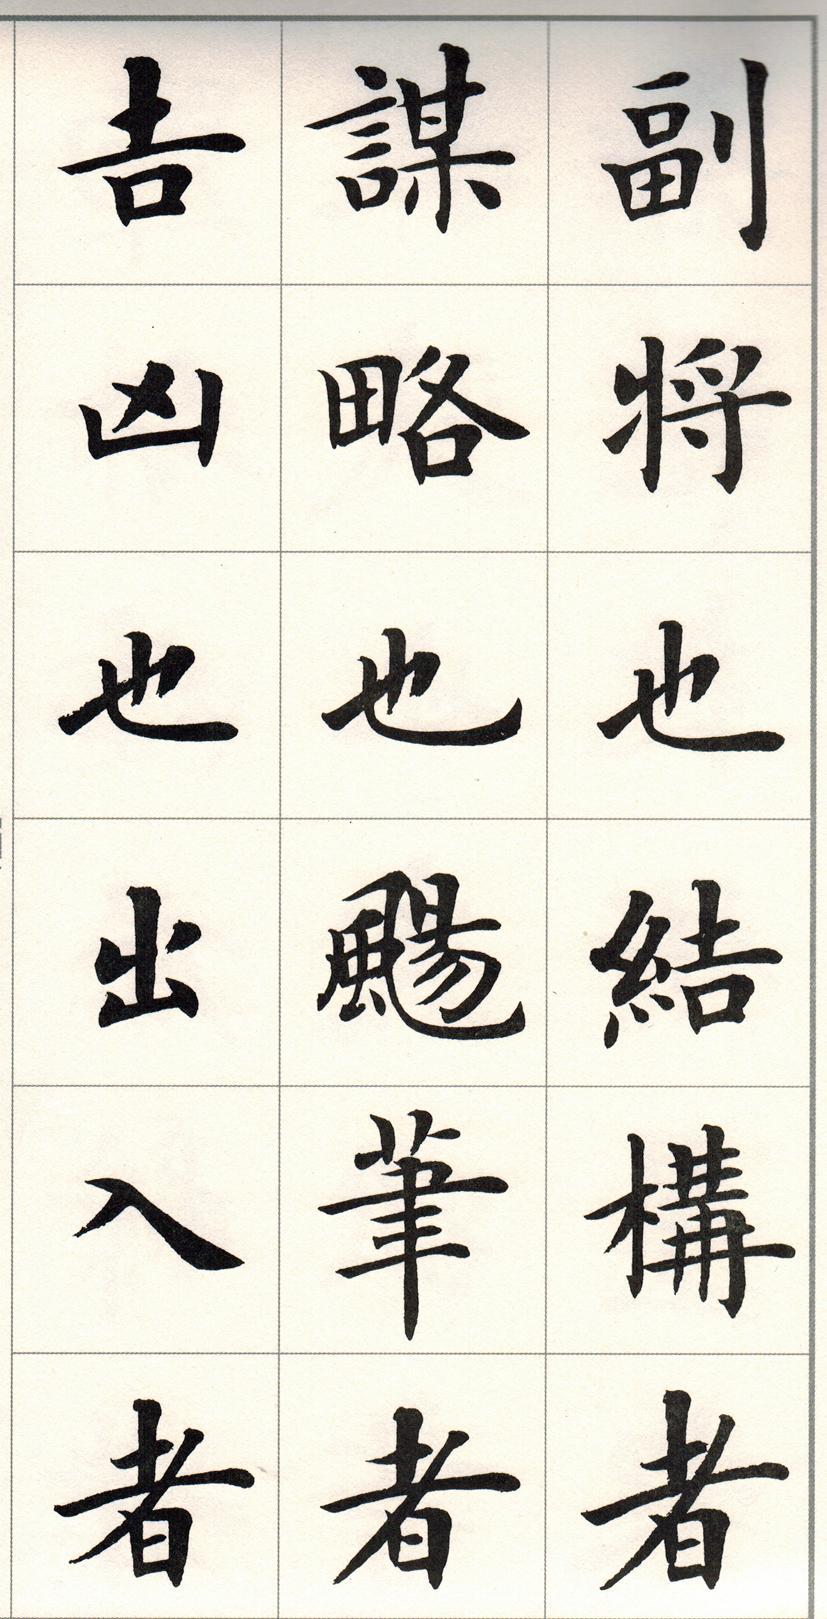 副將也結構者
謀略也颺筆者
吉凶也出入者